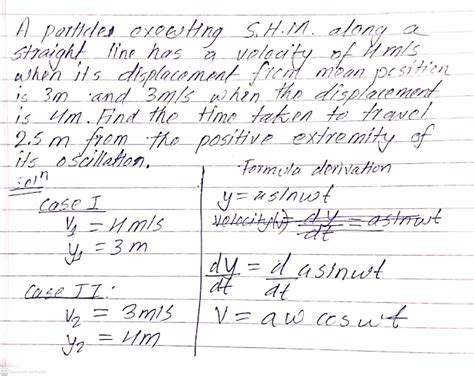 A particles executing S.H.M. along a
straight line has a velocity of 4m/s
when its displacement from mean position
is 3m and 3m/s when the displacement
is 4m. Find the time taken to travel
2.5 m from the positive extremity of
its oscillation.
:soln
Case I
V₁ = 4m/s
y₁ = 3m
Case II:
V₂ = 3m/s
y₂ = 4m
Formula derivation
y = asinwt
velocity(v) dy/dt = asinwt
dy/dt = d/dt asinwt
V = aw coswt